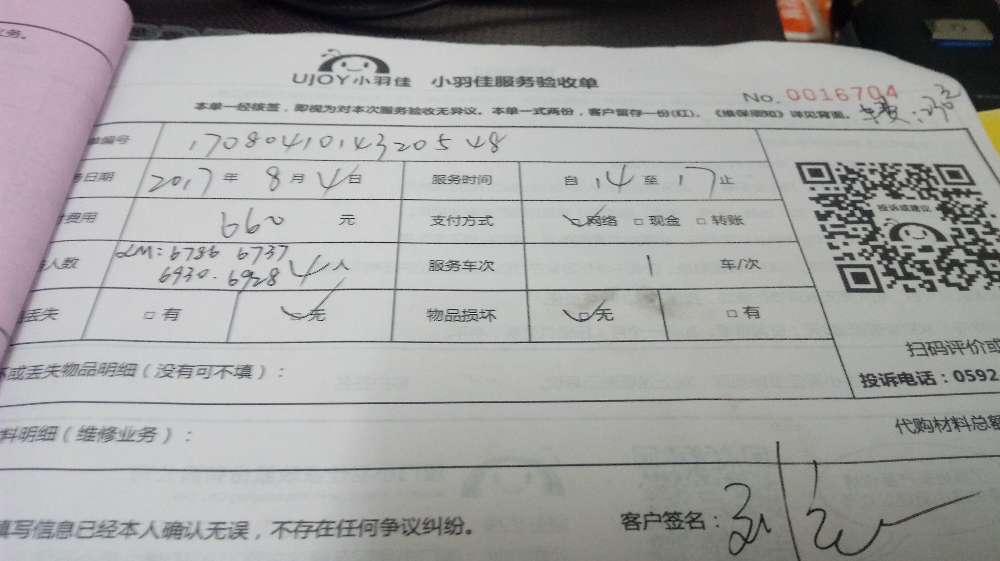 务。
UJOY小羽佳 小羽佳服务验收单
No. 0016704
本单一经核签，即视为对本次服务验收无异议。本单一式两份，客户留存一份(红)。《维保须知》详见背面。
单编号 17080410143205 48
日期 2017年 8月4日 服务时间 自 14 至 17 止
费用 660 元 支付方式 网络 □现金 □转账
投诉或建议
人数 LM：6786 6737
6930.6928 4人 服务车次 1 车/次
丢失 □有 □无 物品损坏 □无 □有
扫码评价或
坏或丢失物品明细（没有可不填）：
投诉电话：0592
料明细（维修业务）：
代购材料总额
填写信息已经本人确认无误，不存在任何争议纠纷。 客户签名：